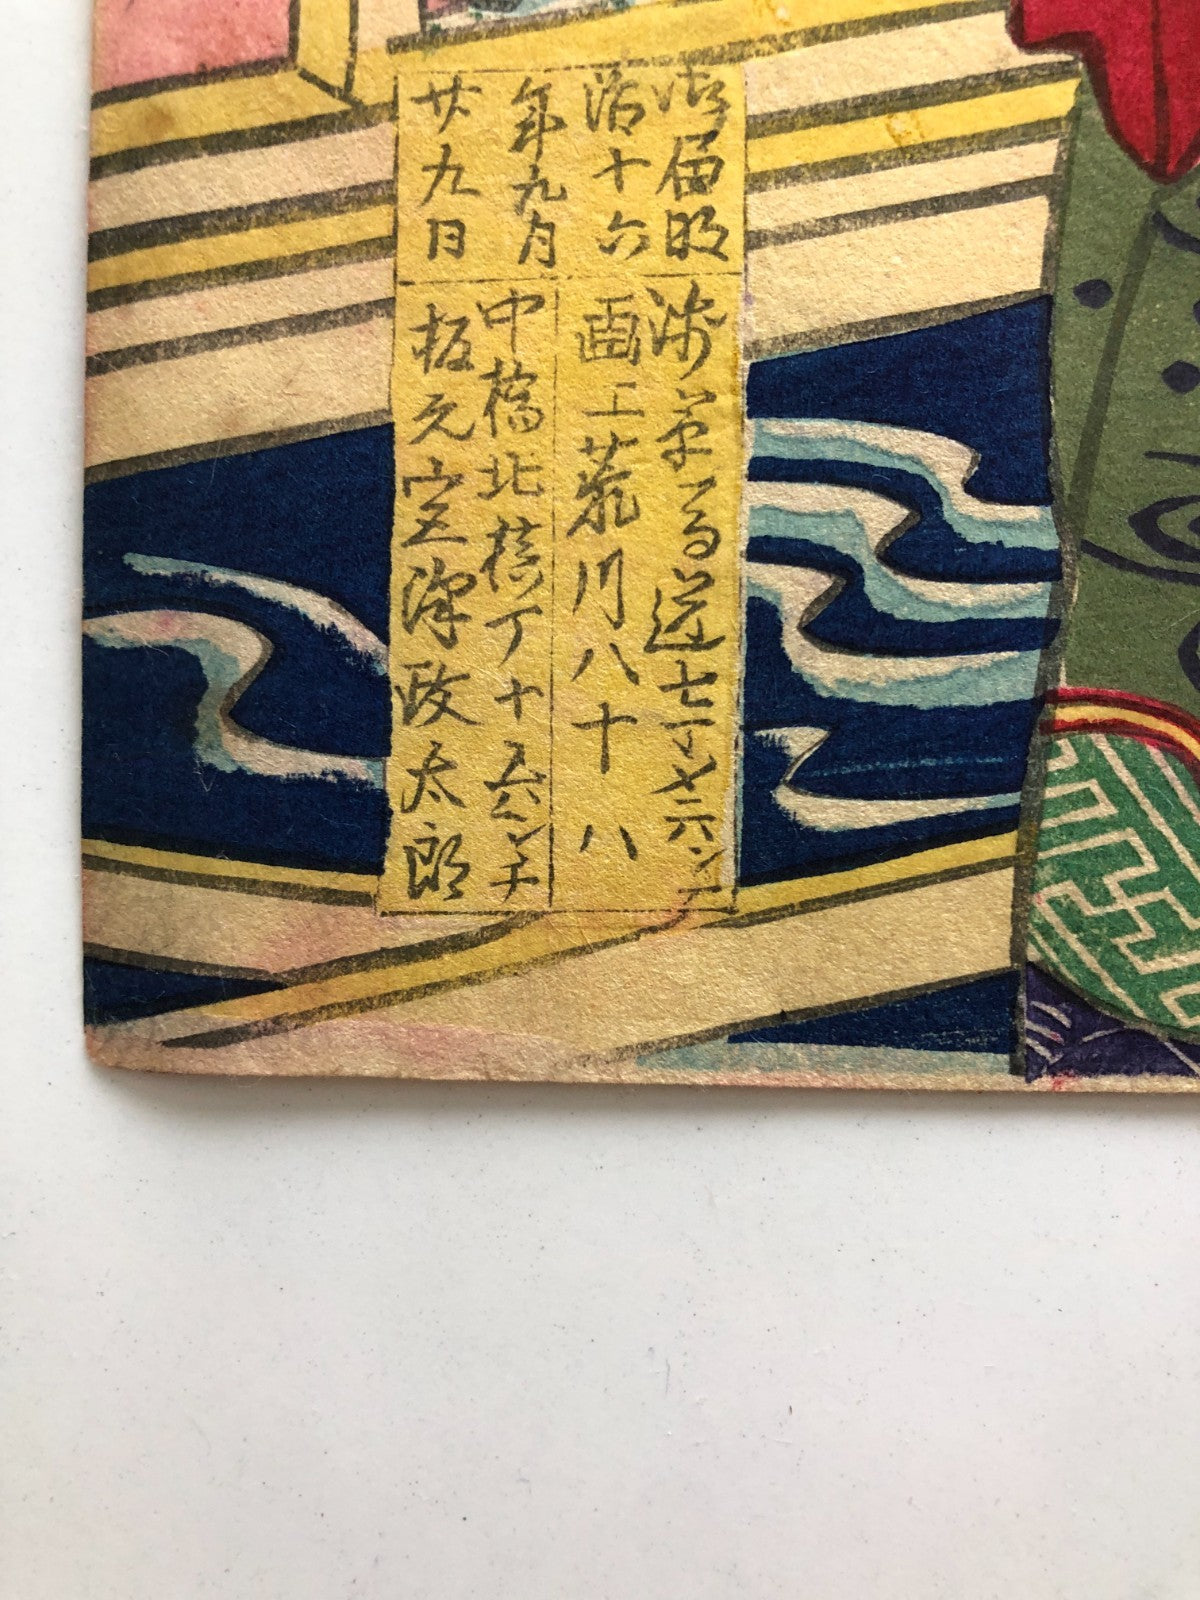 御届明
治十六
年九月
廿九日
浅草馬道七丁メ六
画工荒川八十八
中橋北槙丁十五ハンチ
板元宮澤政太郎